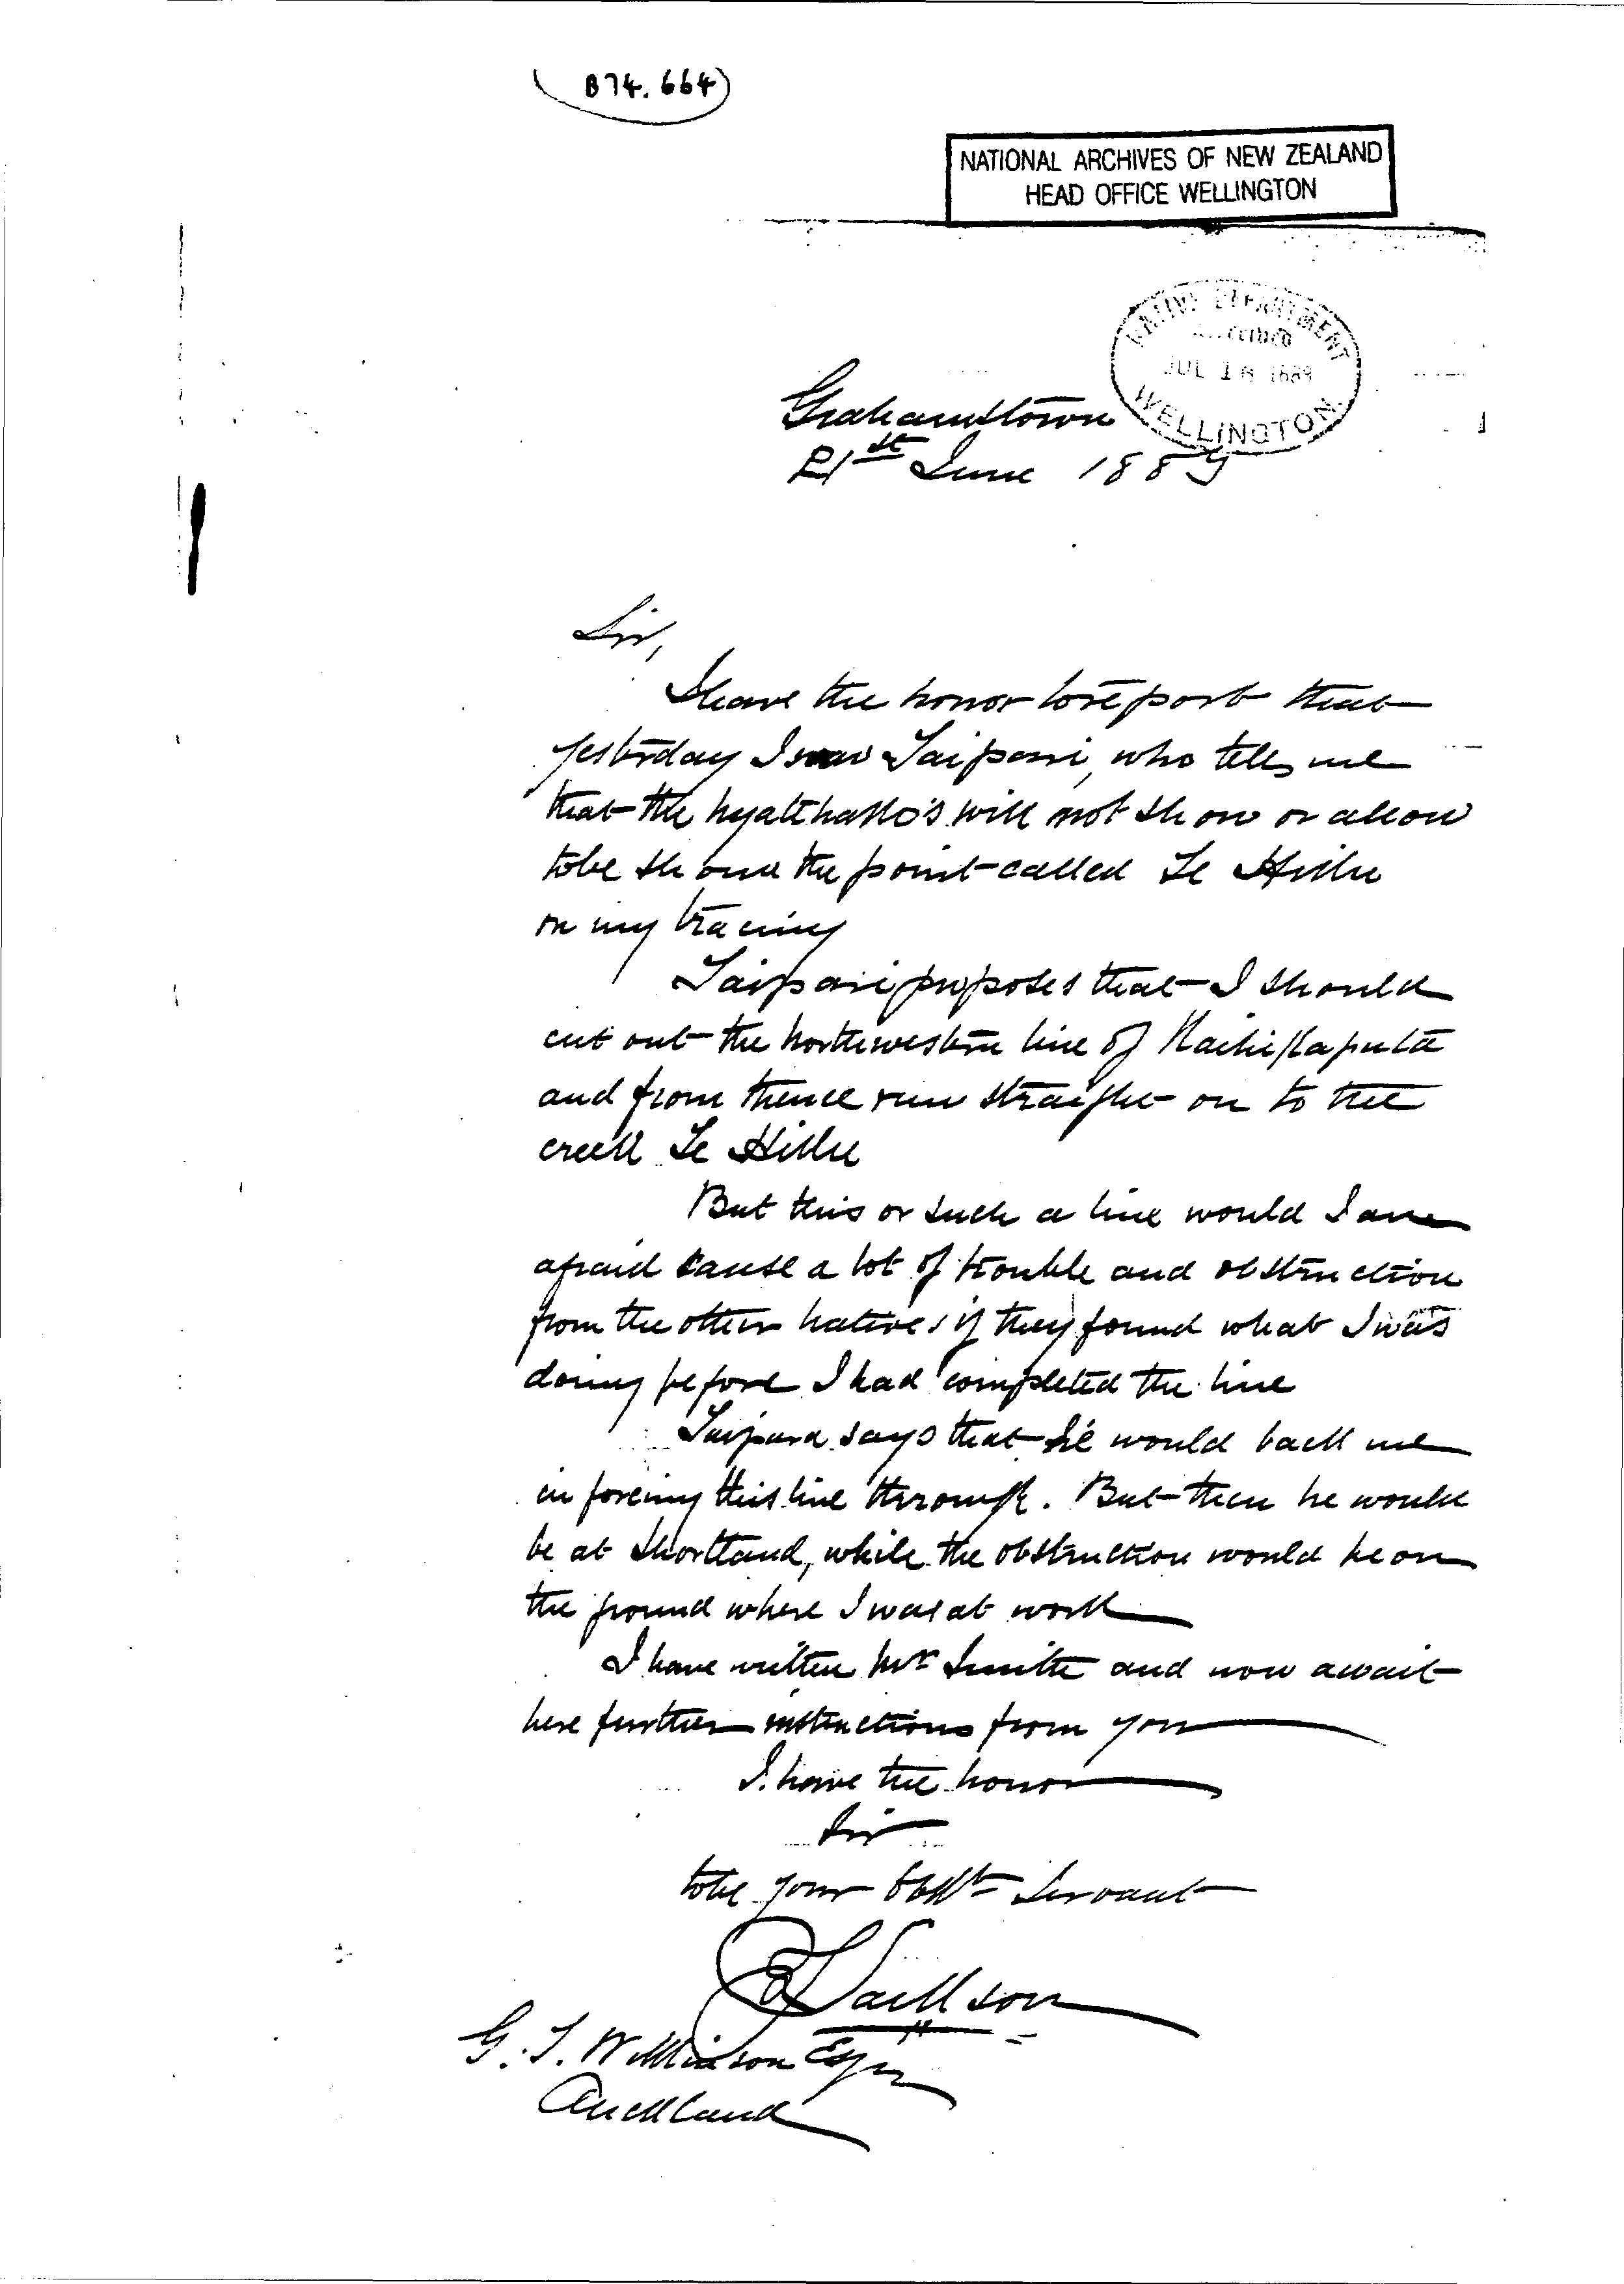 B74. 664
NATIONAL ARCHIVES OF NEW ZEALAND
HEAD OFFICE WELLINGTON
NATIVE DEPARTMENT
RECEIVED
JUL 18 1889
WELLINGTON
Grahamstown
21st June 1889
Sir,
I have the honor to report that
yesterday I saw Taipari, who tells me
that the will not show or allow
to be shown the point called Te Hihi
on my tracing
Taipari proposes that I should
cut out the northwestern line of
and from thence run straight on to the
creek Te Hihi
But this or such a line would I am
afraid cause a lot of trouble and obstruction
from the other natives if they found what I was
doing before I had completed the line
Taipari says that he would back me
in forcing this line through. But then he would
be at Shortland, while the obstruction would be on
the ground where I was at work
I have written Mr Smith and now await
here further instructions from you
I have the honor
Sir
to be your obdt servant
Jackson
G. T. Wilkinson Esqr
Auckland